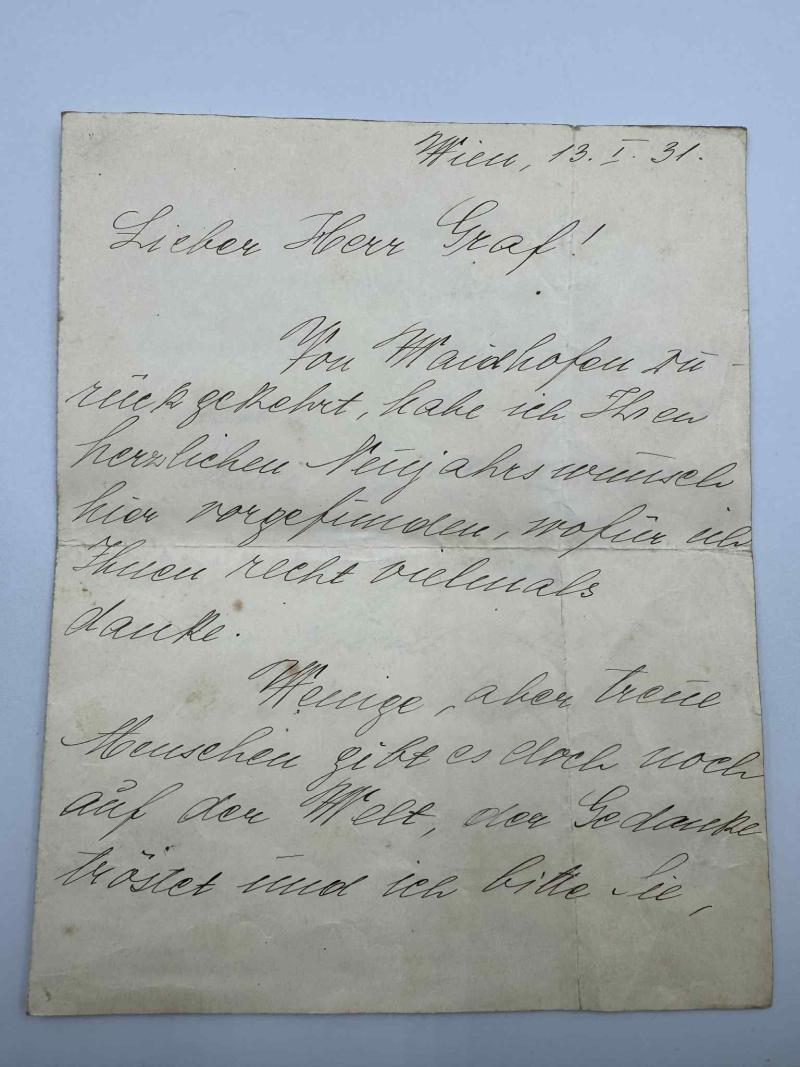 Wien, 13. I. 31.
Lieber Herr Graf!
Von Waidhofen zu-
rückgekehrt, habe ich Ihren
herzlichen Neujahrswunsch
hier vorgefunden, wofür ich
Ihnen recht vielmals
danke.
Wenige, aber treue
Menschen gibt es doch noch
auf der Welt, der Gedanke
tröstet und ich bitte Sie,